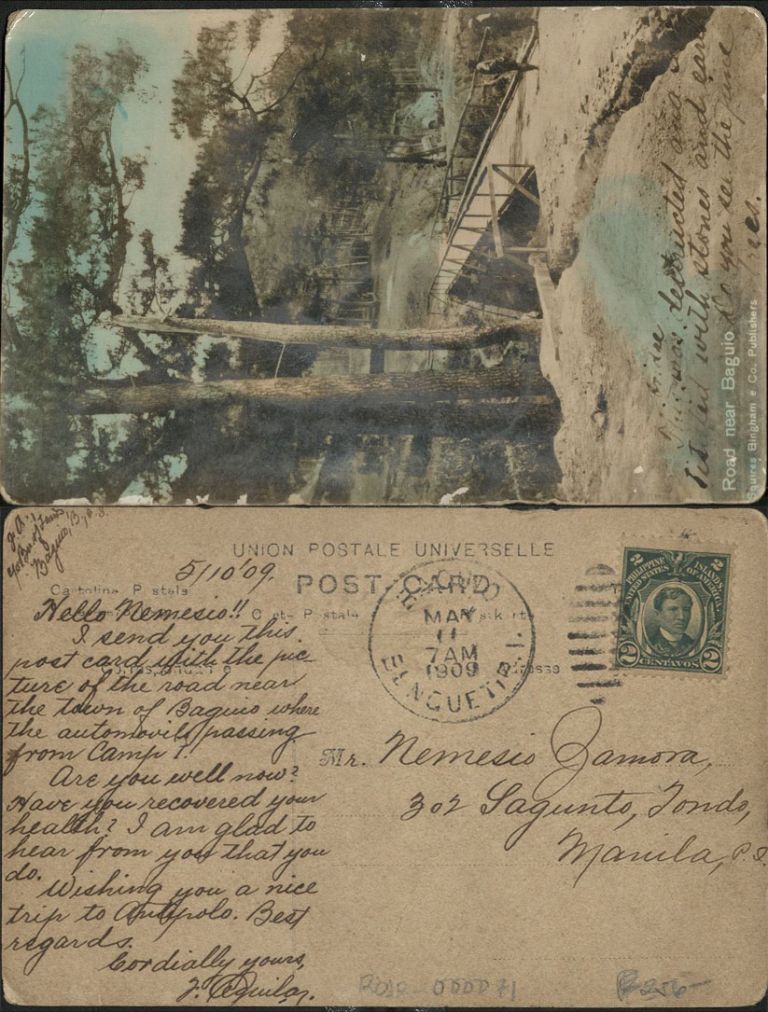 since destructed and
This was
filled with stones and ear
Do you see the pine
trees.
Road near Baguio
Squires Bingham & Co. Publishers
Baguio, B, P. I.
UNION POSTALE UNIVERSELLE
5/10'09.
POST-CARD
Hello Nemesio!!
I send you this
post card with the pic-
ture of the road near
the town of Baguio where
the automovils passing
from Camp 1.
Are you well now?
Have you recovered your
health? I am glad to
hear from you that you
do.
Wishing you a nice
trip to Antipolo. Best
regards.
Cordially yours,
J. Aguilar.
BAGUIO
MAY
11
7AM
1909
BENGUET P.I.
PHILIPPINE ISLANDS
UNITED STATES OF AMERICA
2 CENTAVOS 2
Mr. Nemesio Zamora,
302 Sagunto, Tondo,
Manila, P.I.
000071